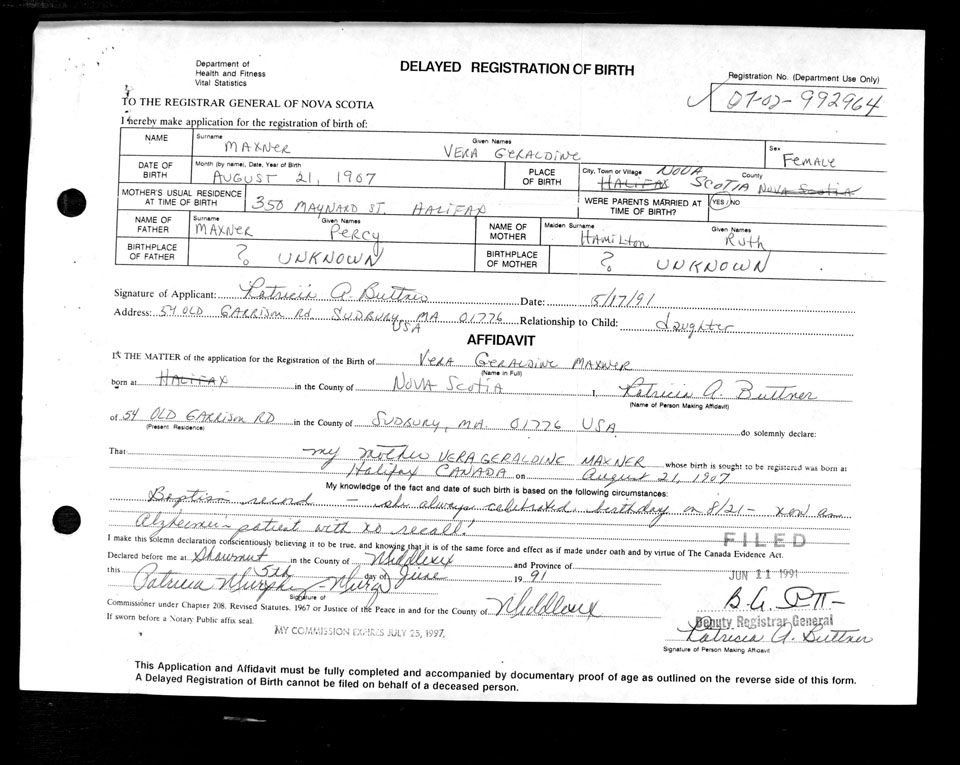 Department of
Health and Fitness
Vital Statistics
DELAYED REGISTRATION OF BIRTH
Registration No. (Department Use Only)
07-02-992964
TO THE REGISTRAR GENERAL OF NOVA SCOTIA
I hereby make application for the registration of birth of:
NAME Surname MAXNER Given Names VERA GERALDINE Sex FEMALE
DATE OF BIRTH Month (by name), Date, Year of Birth AUGUST 21, 1907 PLACE OF BIRTH City, Town or Village HALIFAX NOVA SCOTIA County NOVA SCOTIA
MOTHER'S USUAL RESIDENCE AT TIME OF BIRTH 350 MAYNARD ST. HALIFAX WERE PARENTS MARRIED AT TIME OF BIRTH? YES/NO
NAME OF FATHER Surname MAXNER Given Names PERCY NAME OF MOTHER Maiden Surname HAMILTON Given Names RUTH
BIRTHPLACE OF FATHER ? UNKNOWN BIRTHPLACE OF MOTHER ? UNKNOWN
Signature of Applicant: Patricia A. Buttner Date: 5/17/91
Address: 54 OLD GARRISON Rd. SUDBURY, MA 01776 USA Relationship to Child: daughter
AFFIDAVIT
IN THE MATTER of the application for the Registration of the Birth of VERA GERALDINE MAXNER
(Name in Full)
born at HALIFAX in the County of NOVA SCOTIA I, Patricia A. Buttner
(Name of Person Making Affidavit)
of 54 OLD GARRISON RD in the County of SUDBURY, MA. 01776 USA do solemnly declare:
(Present Residence)
That my mother VERA GERALDINE MAXNER whose birth is sought to be registered was born at
Halifax CANADA on August 21, 1907
My knowledge of the fact and date of such birth is based on the following circumstances:
Baptism record - she always celebrated birthday on 8/21 - now an
Alzheimer's patient with no recall!
FILED
I make this solemn declaration conscientiously believing it to be true, and knowing that it is of the same force and effect as if made under oath and by virtue of The Canada Evidence Act.
Declared before me at Shawmut in the County of Middlesex and Province of
this 5th day of June 1991
JUN 11 1991
Patricia Murphy
Signature of
Commissioner under Chapter 208. Revised Statutes. 1967 or Justice of the Peace in and for the County of Middlesex
If sworn before a Notary Public affix seal.
MY COMMISSION EXPIRES JULY 25, 1997.
Deputy Registrar General
Patricia A. Buttner
Signature of Person Making Affidavit
This Application and Affidavit must be fully completed and accompanied by documentary proof of age as outlined on the reverse side of this form.
A Delayed Registration of Birth cannot be filed on behalf of a deceased person.